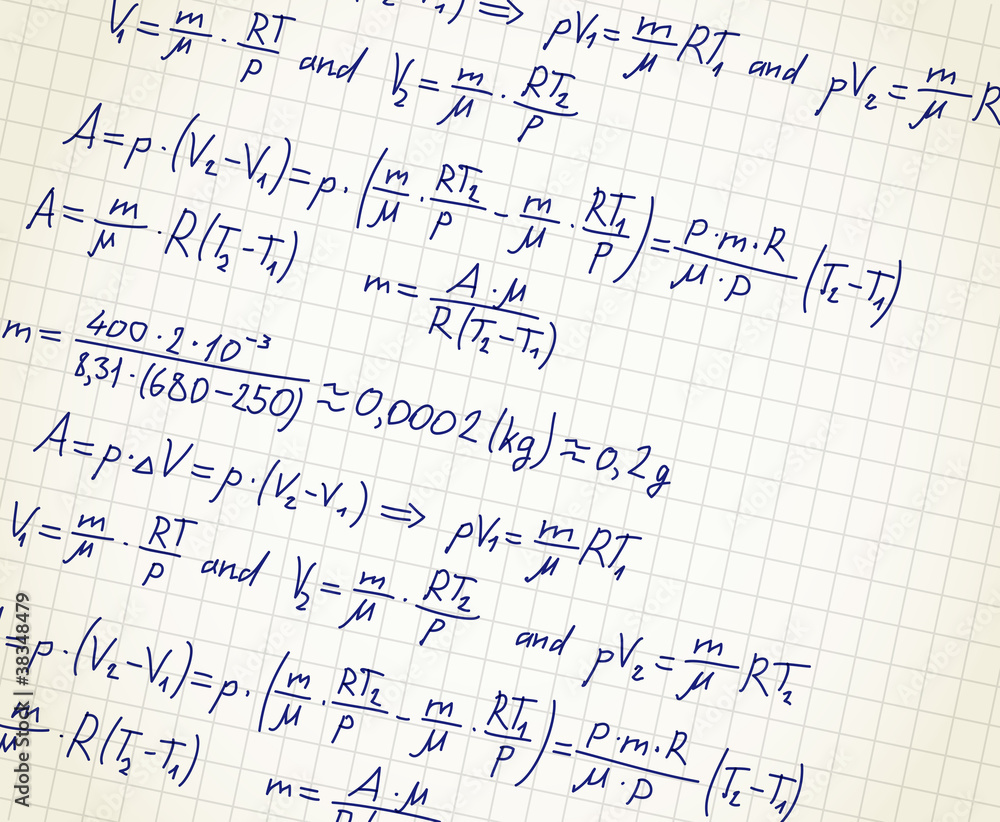 V₁) ⇒ pV₁ = m/μ RT₁ and pV₂ = m/μ R
V₁ = m/μ · RT/p and V₂ = m/μ · RT₂/p
A = p · (V₂ – V₁) = p · (m/μ · RT₂/p – m/μ · RT₁/p) = p·m·R/μ·p (T₂ – T₁)
A = m/μ · R(T₂ – T₁) m = A·μ/R(T₂ – T₁)
m = 400·2·10⁻³/8,31·(680 – 250) ≈ 0,0002 (kg) ≈ 0,2g
A = p · ΔV = p · (V₂ – V₁) ⇒ pV₁ = m/μ RT₁
V₁ = m/μ · RT/p and V₂ = m/μ · RT₂/p and pV₂ = m/μ RT₂
= p · (V₂ – V₁) = p · (m/μ · RT₂/p – m/μ · RT₁/p) = p·m·R/μ·p (T₂ – T₁)
m/μ · R(T₂ – T₁) m = A·μ/R(
Adobe Stock | #38348479